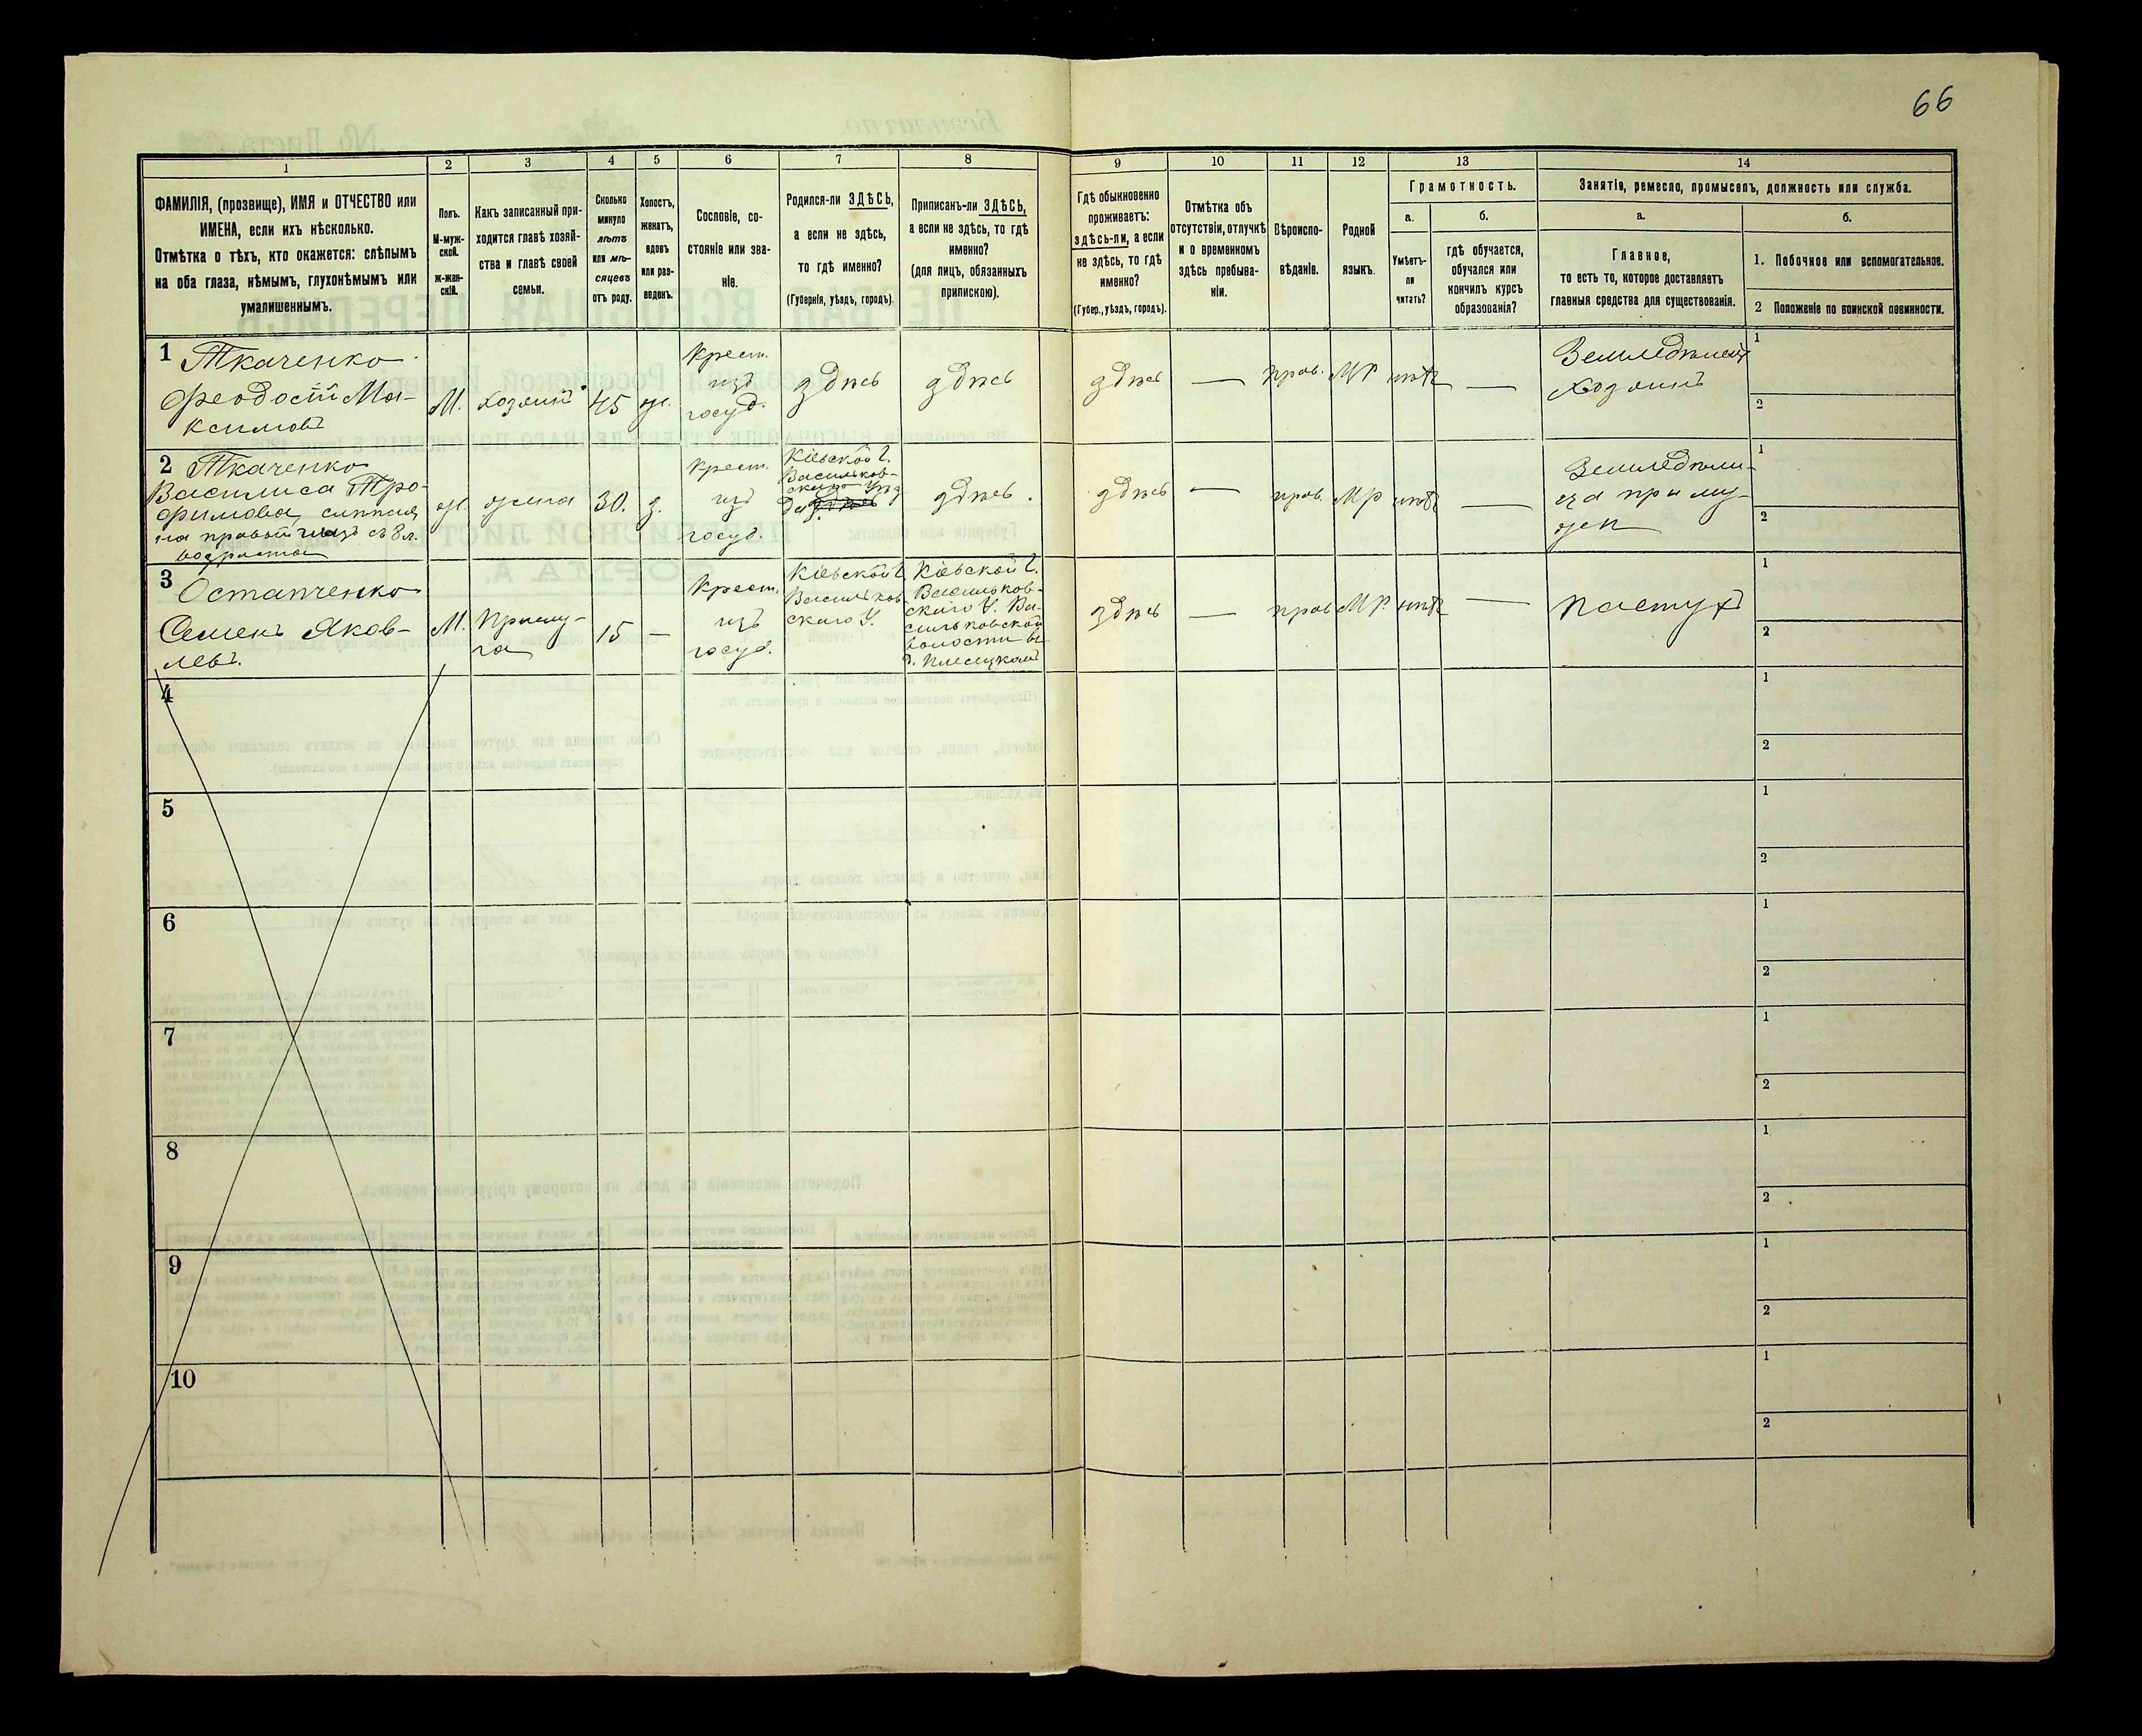 66
1 2 3 4 5 6 7 8 9 10 11 12 13 14
ФАМИЛІЯ, (прозвище), ИМЯ и ОТЧЕСТВО или
ИМЕНА, если ихъ нѣсколько.
Отмѣтка о тѣхъ, кто окажется: слѣпымъ
на оба глаза, нѣмымъ, глухонѣмымъ или
умалишеннымъ.
Полъ.
М-муж-
ской.
Ж-жен-
скій.
Какъ записанный при-
ходится главѣ хозяй-
ства и главѣ своей
семьи.
Сколько
минуло
лѣтъ
или мѣ-
сяцевъ
отъ роду.
Холостъ,
женатъ,
вдовъ
или раз-
веденъ.
Сословіе, со-
стояніе или зва-
ніе.
Родился-ли ЗДѢСЬ,
а если не здѣсь,
то гдѣ именно?
(Губернія, уѣздъ, городъ).
Приписанъ-ли ЗДѢСЬ,
а если не здѣсь, то гдѣ
именно?
(для лицъ, обязанныхъ
припискою).
Гдѣ обыкновенно
проживаетъ:
здѣсь-ли, а если
не здѣсь, то гдѣ
именно?
(Губер., уѣздъ, городъ).
Отмѣтка объ
отсутствіи, отлучкѣ
и о временномъ
здѣсь пребыва-
ніи.
Вѣроиспо-
вѣданіе.
Родной
языкъ.
Грамотность.
а.
Умѣетъ-
ли
читать?
б.
гдѣ обучается,
обучался или
кончилъ курсъ
образованія?
Занятіе, ремесло, промыселъ, должность или служба.
а.
Главное,
то есть то, которое доставляетъ
главныя средства для существованія.
б.
1. Побочное или вспомогательное.
2 Положеніе по воинской повинности.
1 Ткаченко
Феодосій Ма-
ксимовъ
М.
хозяинъ
45
ж.
крест.
изъ
госуд.
здѣсь
здѣсь
здѣсь
—
прав.
МР
нѣтъ
—
Земледѣлецъ
хозяинъ
1
2
2 Ткаченко
Василиса Тро-
фимова, слѣпая
на правый глазъ съ 8 л.
возраста
ж.
жена
30.
з.
крест.
изъ
госуд.
Кіевской г.
Васильков-
скаго Уѣз
да
здѣсь.
здѣсь
—
прав.
МР
нѣтъ
—
Земледѣли-
ца при му-
жѣ
1
2
3 Остапченко
Семенъ Яков-
левъ.
М.
Прислу-
га
15
—
крест.
изъ
госуд.
Кіевской г.
Васильков
скаго У.
Кіевской г.
Васильков-
скаго У. Ва-
сильковской
волости въ
д. Плесецкой
здѣсь
—
прав
МР
нѣтъ
—
пастухъ
1
2
4
1
2
5
1
2
6
1
2
7
1
2
8
1
2
9
1
2
10
1
2